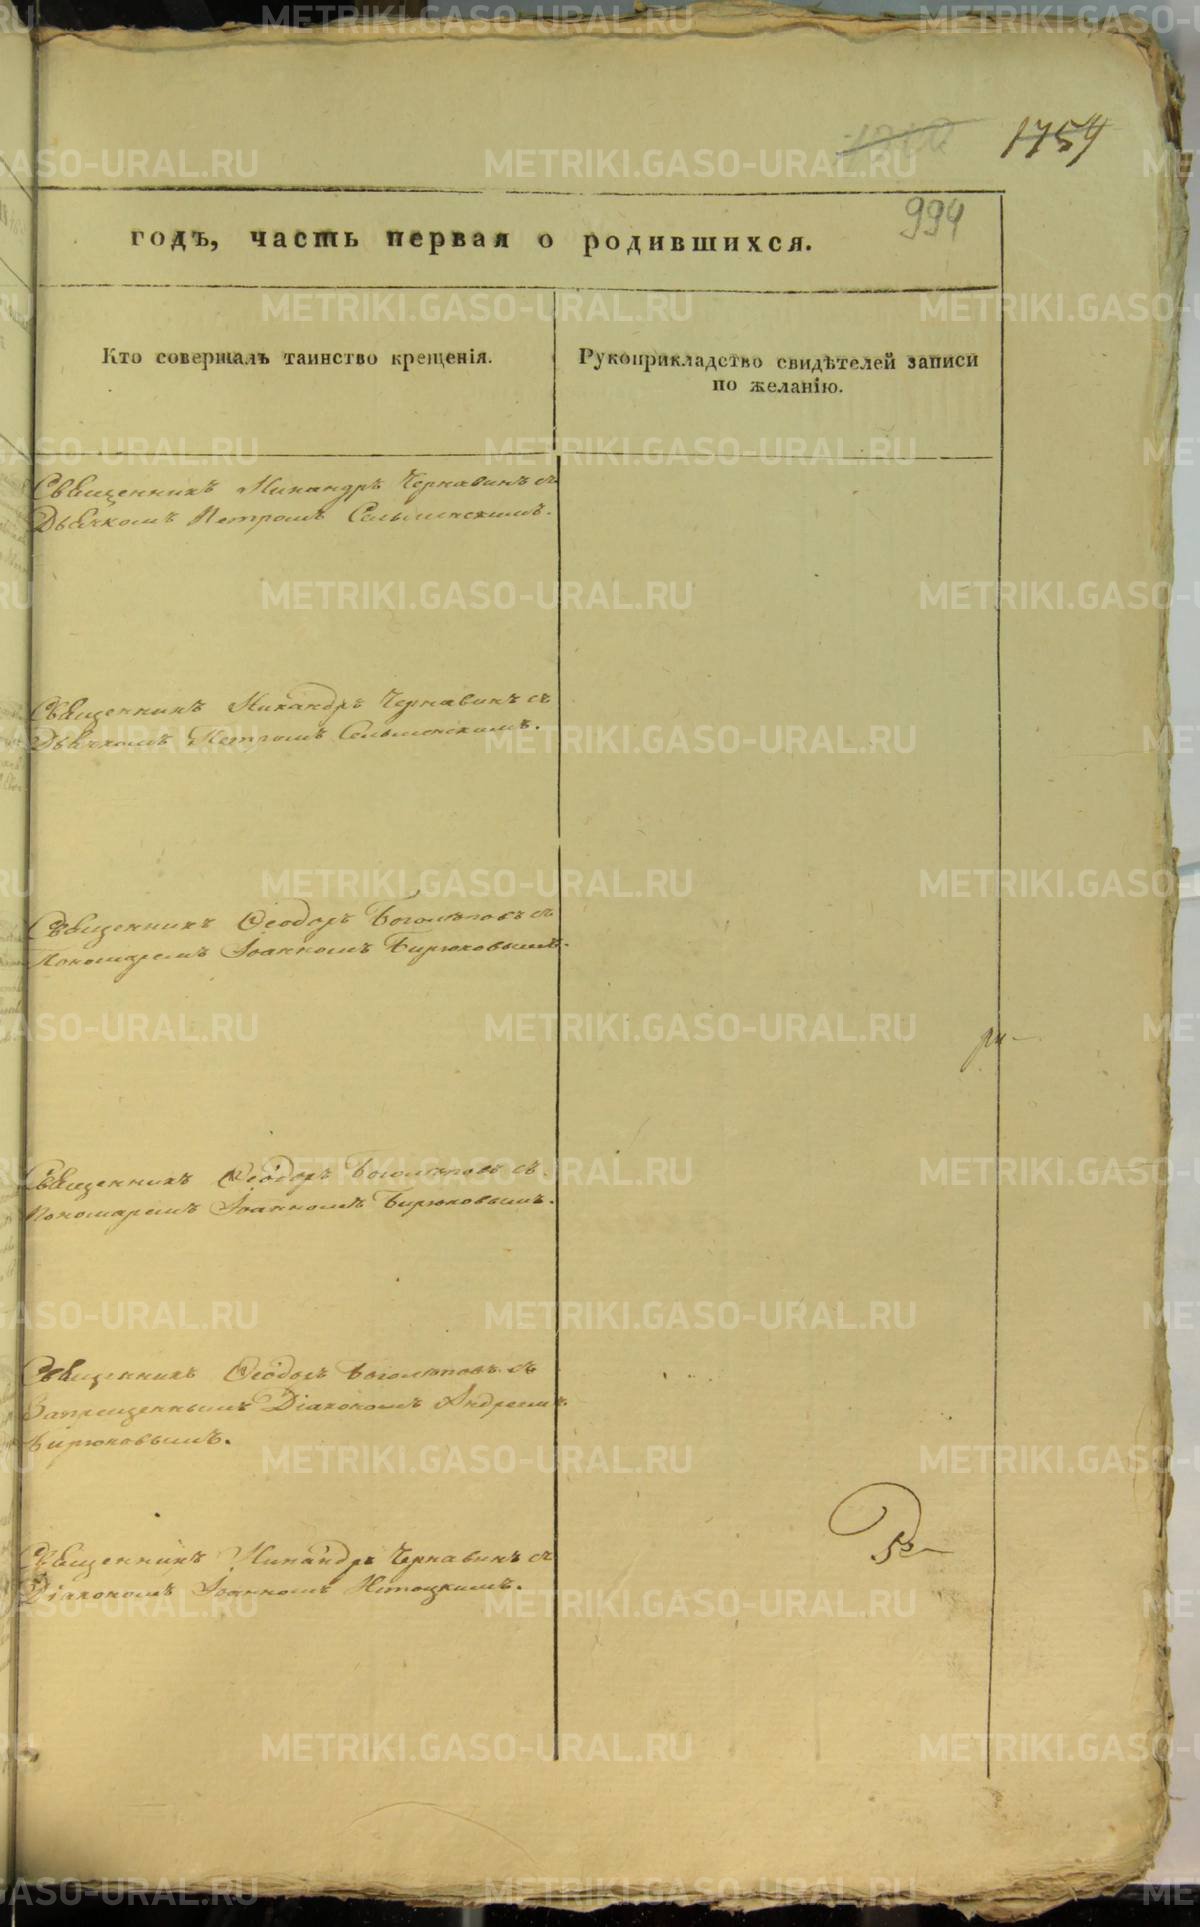 1754
994
годъ, часть первая о родившихся.
Кто совершалъ таинство крещенія.
Рукоприкладство свидѣтелей записи
по желанію.
Священникъ Никандръ Чернавинъ съ
Дьячкомъ Петромъ Сельменскимъ.
Священникъ Никандръ Чернавинъ съ
Дьячкомъ Петромъ Сельменскимъ.
Священникъ Ѳеодоръ Боголѣповъ съ
Пономаремъ Іоанномъ Бирюковымъ.
Священникъ Ѳеодоръ Боголѣповъ съ
Пономаремъ Іоанномъ Бирюковымъ.
Священникъ Ѳеодоръ Боголѣповъ съ
Запрещеннымъ Діакономъ Андреемъ
Бирюковымъ.
Священникъ Никандръ Чернавинъ съ
Діакономъ Іоанномъ
METRIKI.GASO-URAL.RU